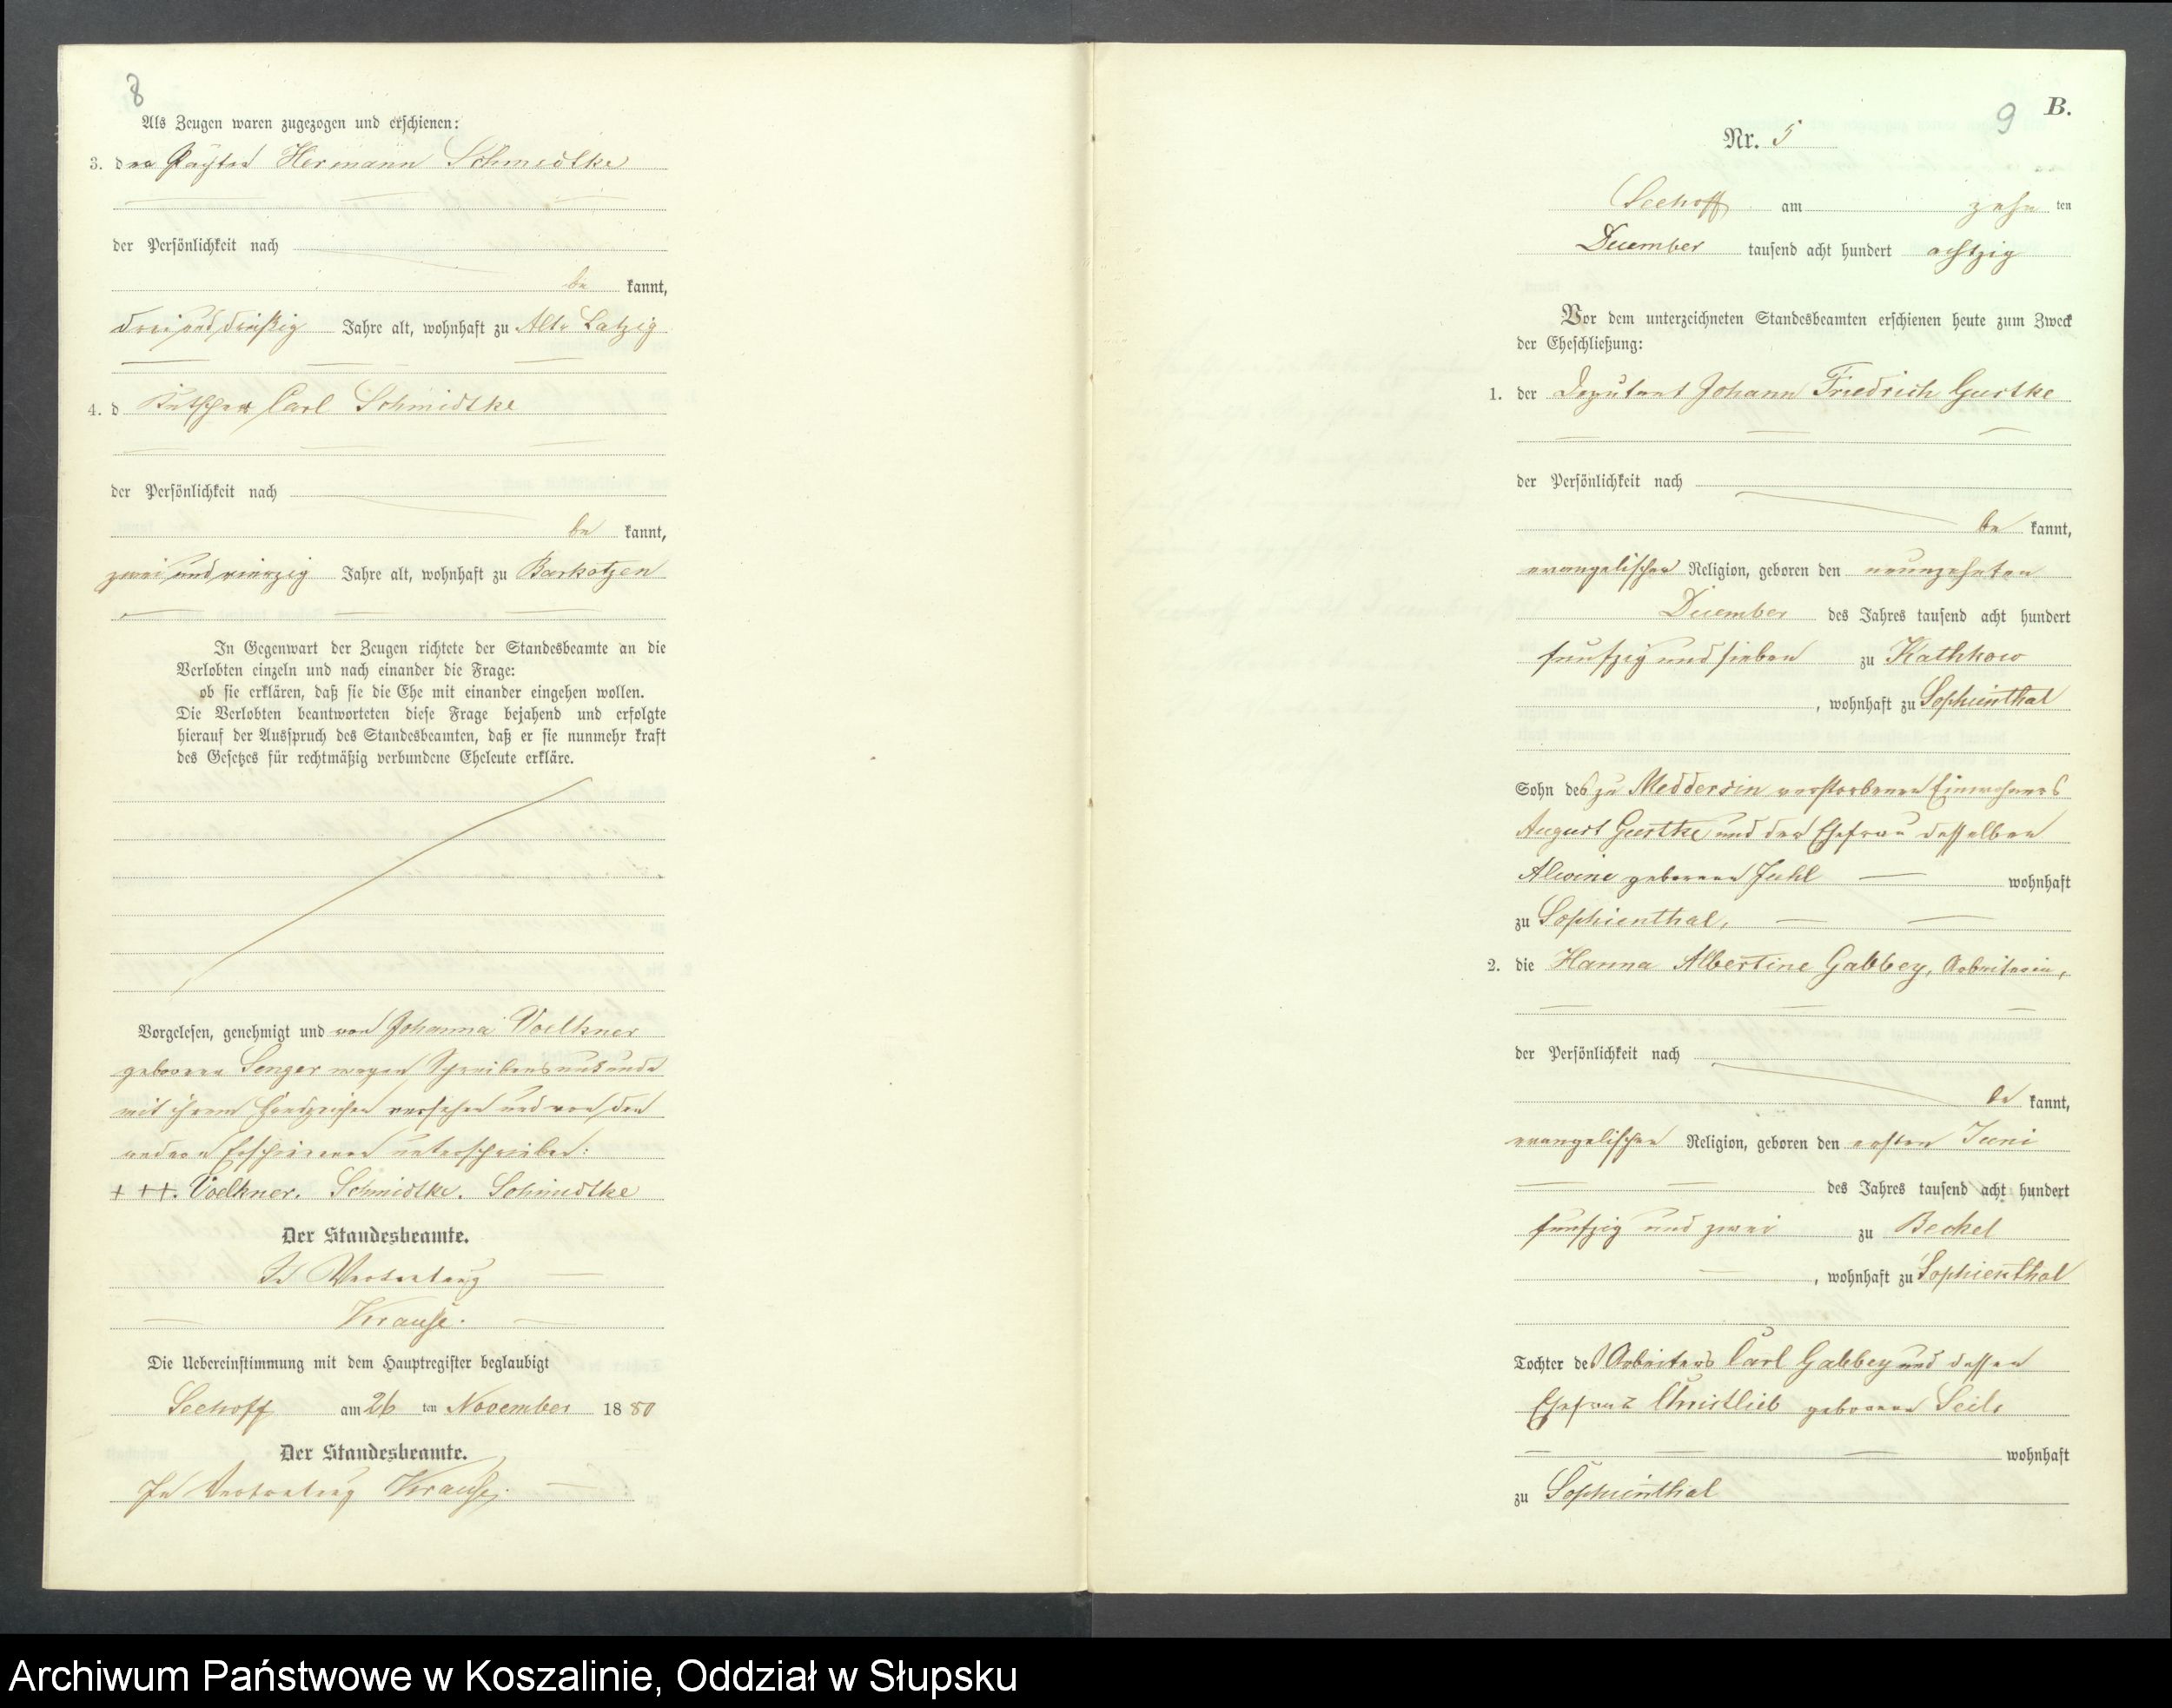 8
Als Zeugen waren zugezogen und erschienen:
3. der Pächter Hermann Schmidtke
der Persönlichkeit nach
be kannt,
drei und dreißig Jahre alt, wohnhaft zu Alt Latzig
4. d Kutscher Carl Schmidtke
der Persönlichkeit nach
be kannt,
zwei und vierzig Jahre alt, wohnhaft zu Barkotzen
In Gegenwart der Zeugen richtete der Standesbeamte an die
Verlobten einzeln und nach einander die Frage:
ob sie erklären, daß sie die Ehe mit einander eingehen wollen.
Die Verlobten beantworteten diese Frage bejahend und erfolgte
hierauf der Ausspruch des Standesbeamten, daß er sie nunmehr kraft
des Gesetzes für rechtmäßig verbundene Eheleute erkläre.
Vorgelesen, genehmigt und von Johanna Voelkner
geborene Senger wegen Schreibensunkunde
mit ihrem Handzeichen versehen und von den
andern Erschienenen unterschrieben:
+++. Voelkner. Schmidtke. Schmidtke
Der Standesbeamte.
In Vertretung
Krause.
Die Uebereinstimmung mit dem Hauptregister beglaubigt
Seehoff am 26 ten November 18 80
Der Standesbeamte.
In Vertretung Krause.
9 B.
Nr. 5
Seehoff am zehn ten
December tausend acht hundert achtzig
Vor dem unterzeichneten Standesbeamten erschienen heute zum Zweck
der Eheschließung:
1. der Deputant Johann Friedrich Gustke
der Persönlichkeit nach
be kannt,
evangelischer Religion, geboren den neunzehnten
December des Jahres tausend acht hundert
funfzig und sieben zu Kathkow
, wohnhaft zu Sophienthal
Sohn des zu Meddersin verstorbenen Einwohners
August Gustke und der Ehefrau desselben
Alwine geborene Juhl wohnhaft
zu Sophienthal,
2. die Hanna Albertine Gabbey, Arbeiterin,
der Persönlichkeit nach
be kannt,
evangelischer Religion, geboren den ersten Juni
des Jahres tausend acht hundert
funfzig und zwei zu Beckel
, wohnhaft zu Sophienthal
Tochter des Arbeiters Carl Gabbey und dessen
Ehefrau Christlieb geborene Seils
wohnhaft
zu Sophienthal
Archiwum Państwowe w Koszalinie, Oddział w Słupsku